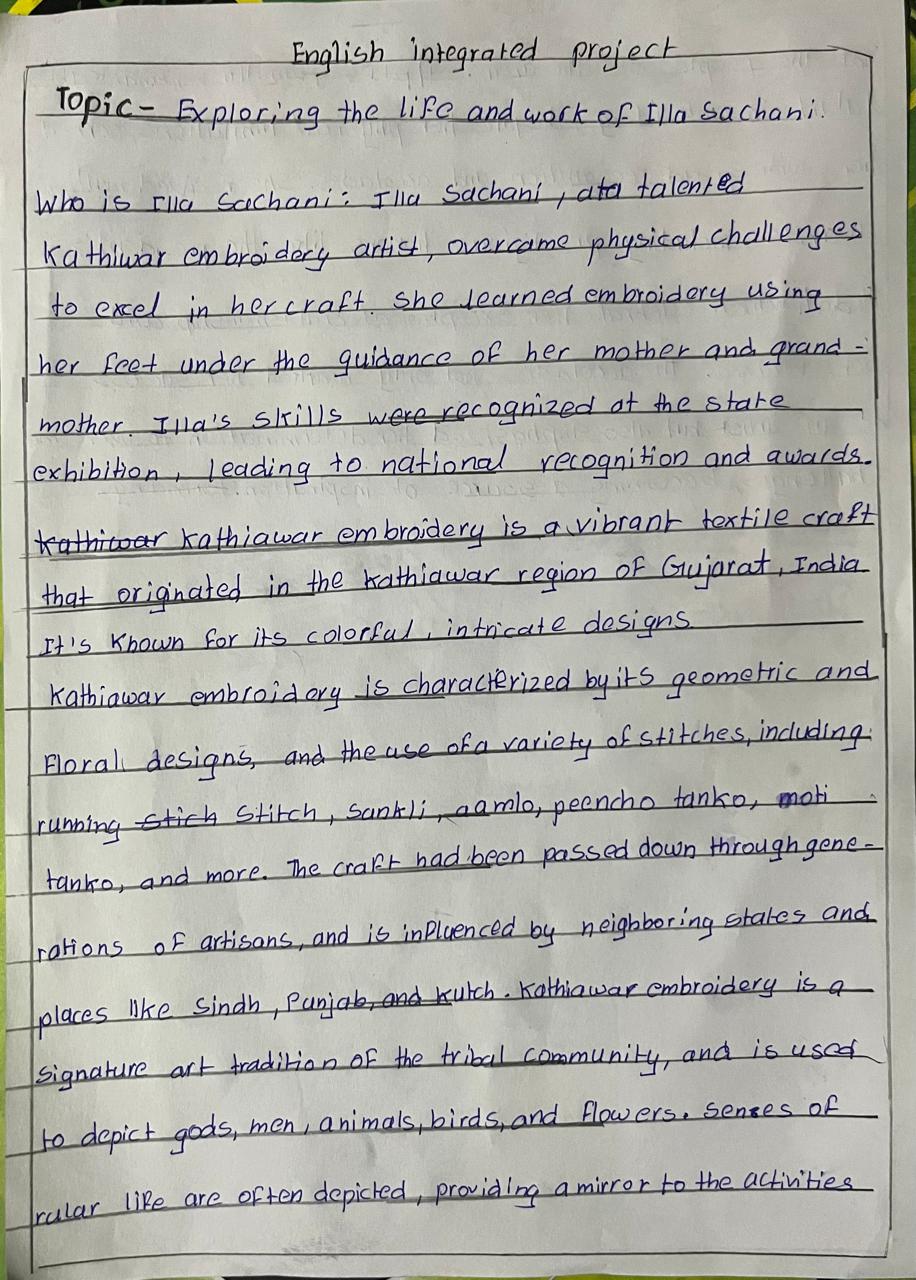 English integrated project
Topic- Exploring the life and work of Illa Sachani.
Who is Illa Sachani: Illa Sachani, ata talented
Kathiwar embroidery artist, overcame physical challenges
to excel in her craft. She learned embroidery using
her feet under the guidance of her mother and grand-
mother. Illa's skills were recognized at the state
exhibition, leading to national recognition and awards.
Kathiwar Kathiawar embroidery is a vibrant textile craft
that originated in the Kathiawar region of Gujarat, India
It's known for its colorful, intricate designs
Kathiawar embroidery is characterized by its geometric and
Floral designs, and the use of a variety of stitches, including
running stich Stitch, Sankli, aamlo, peencho tanko, moti
tanko, and more. The craft had been passed down through gene-
rations of artisans, and is influenced by neighboring states and
places like Sindh, Punjab, and Kutch. Kathiawar embroidery is a
signature art tradition of the tribal community, and is used
to depict gods, men, animals, birds, and flowers. Senses of
rular like are often depicted, providing a mirror to the activities